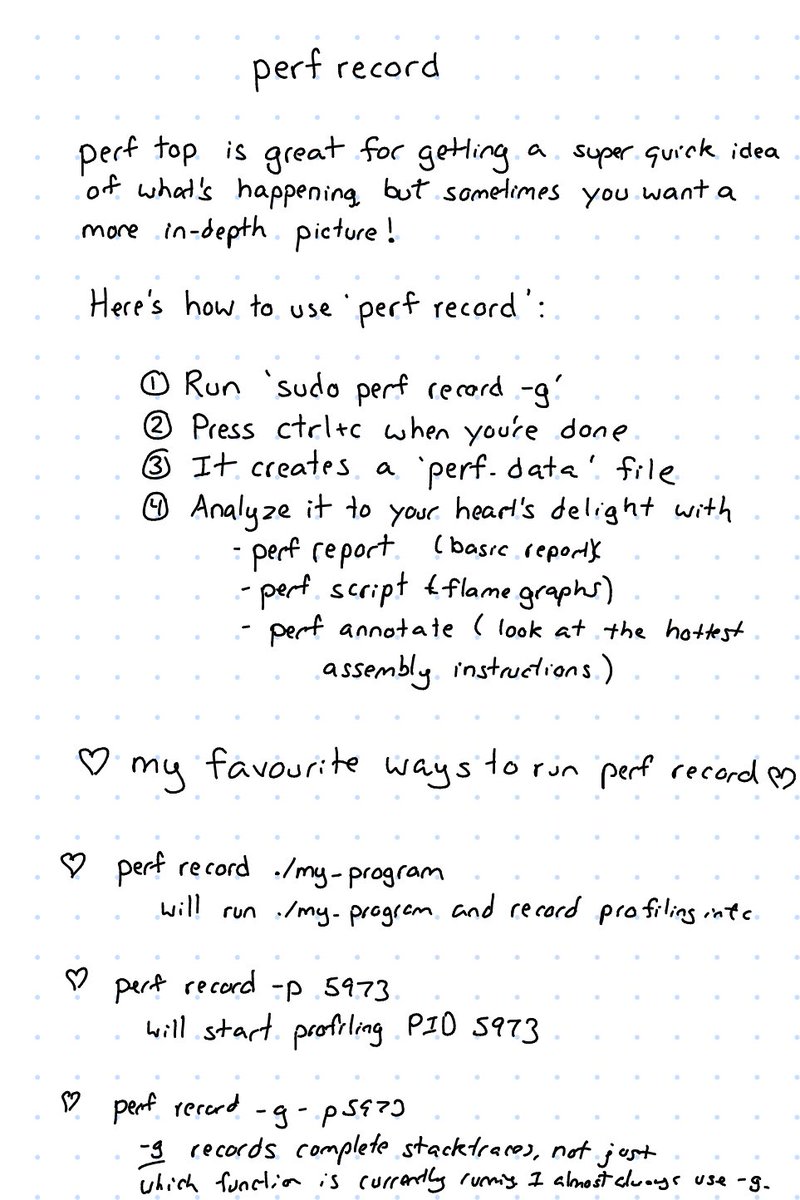 perf record
perf top is great for getting a super quick idea
of what's happening, but sometimes you want a
more in-depth picture!
Here's how to use `perf record`:
① Run `sudo perf record -g`
② Press ctrl+c when you're done
③ It creates a `perf.data` file
④ Analyze it to your heart's delight with
- perf report (basic report)
- perf script (flamegraphs)
- perf annotate (look at the hottest
assembly instructions)
♡ my favourite ways to run perf record ♡
♡ perf record ./my-program
will run ./my-program and record profiling info
♡ perf record -p 5973
will start profiling PID 5973
♡ perf record -g -p 5973
-g records complete stacktraces, not just
which function is currently running I almost always use -g.